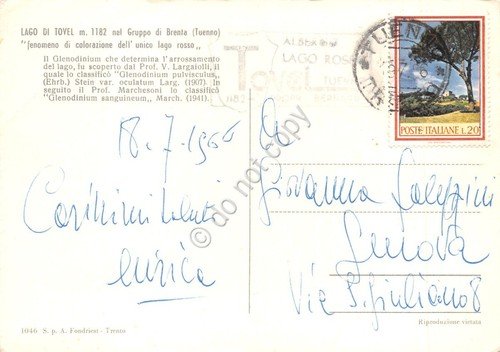 LAGO DI TOVEL m. 1182 nel Gruppo di Brenta (Tuenno)
"fenomeno di colorazione dell'unico lago rosso"
Il Glenodinium che determina l'arrossamento
del lago, fu scoperto dal Prof. V. Largaiolli, il
quale lo classificò "Glenodinium pulvisculus"
(Ehrb.) Stein var. oculatum Larg. (1907). In
seguito il Prof. Marchesoni lo classificò
"Glenodinium sanguineum", March. (1941).
LAGO ROSSO
TUENN
POSTE ITALIANE L.20
18.7.1966
Carissimi saluti
enrica
Giovanna
Genova
Via S. Giuliano 8
do not copy
1046 S. p. A. Fondriest - Trento
Riproduzione vietata